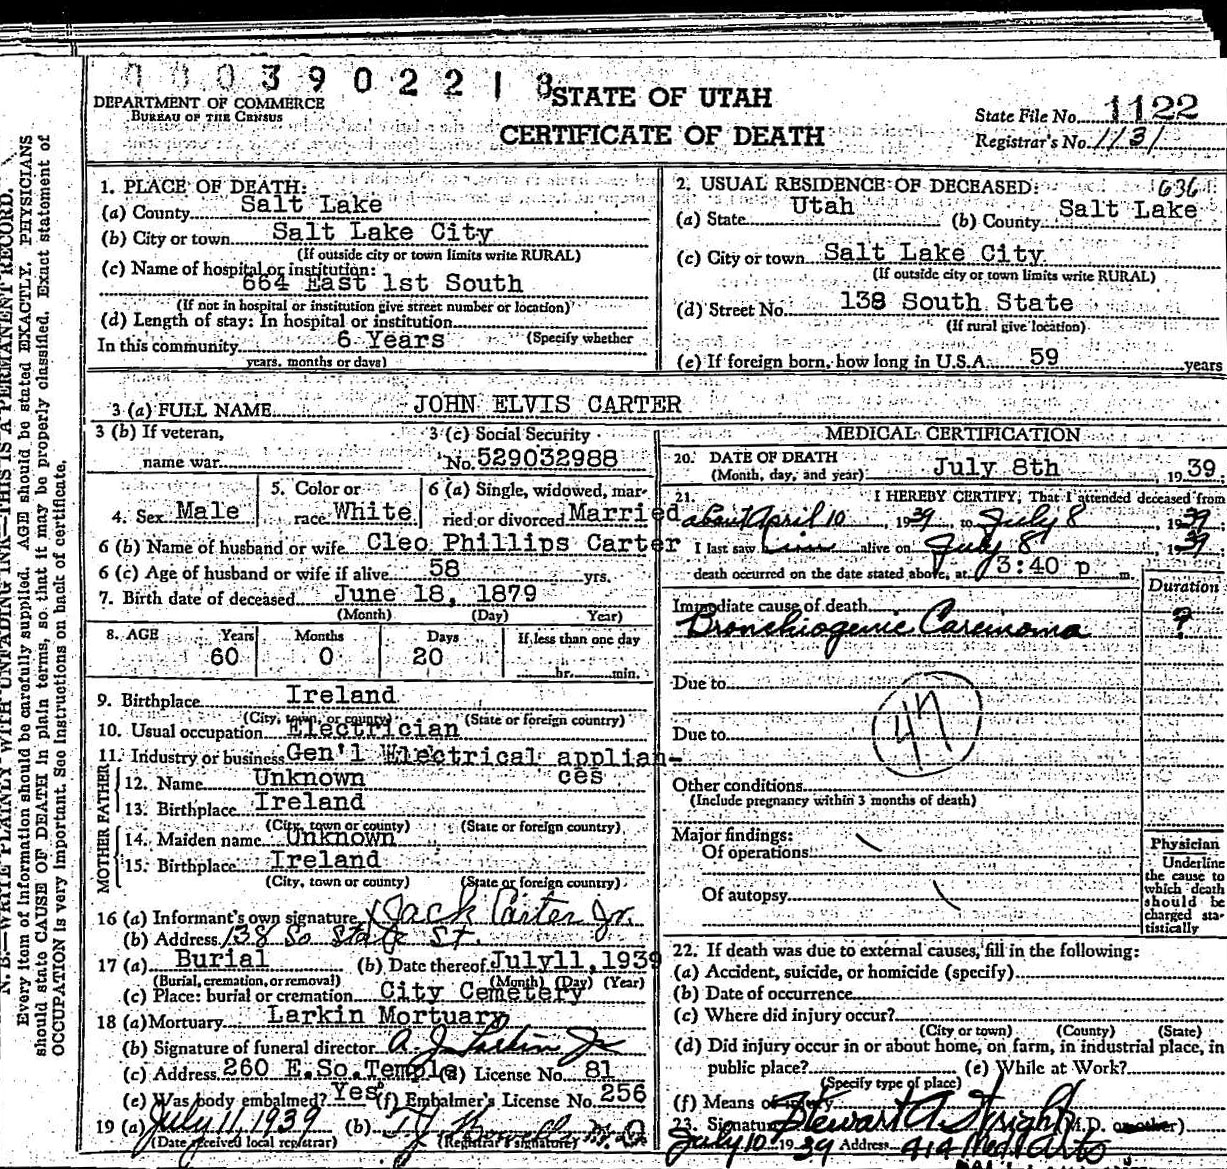 0003902218
DEPARTMENT OF COMMERCE
BUREAU OF THE CENSUS
STATE OF UTAH
CERTIFICATE OF DEATH
State File No. 1122
Registrar's No. 1131
N. B.—WRITE PLAINLY WITH UNFADING INK—THIS IS A PERMANENT RECORD.
Every item of information should be carefully supplied. AGE should be stated EXACTLY. PHYSICIANS
should state CAUSE OF DEATH in plain terms, so that it may be properly classified. Exact statement of
OCCUPATION is very important. See instructions on back of certificate.
1. PLACE OF DEATH:
(a) County Salt Lake
(b) City or town Salt Lake City
(If outside city or town limits write RURAL)
(c) Name of hospital or institution:
664 East 1st South
(If not in hospital or institution give street number or location)
(d) Length of stay: In hospital or institution
In this community 6 Years (Specify whether
years, months or days)
2. USUAL RESIDENCE OF DECEASED: 636
(a) State Utah (b) County Salt Lake
(c) City or town Salt Lake City
(If outside city or town limits write RURAL)
(d) Street No. 138 South State
(If rural give location)
(e) If foreign born, how long in U.S.A. 59 years
3 (a) FULL NAME JOHN ELVIS CARTER
3 (b) If veteran,
name war
3 (c) Social Security
No. 529032988
4. Sex Male
5. Color or
race White
6 (a) Single, widowed, mar-
ried or divorced Married
6 (b) Name of husband or wife Cleo Phillips Carter
6 (c) Age of husband or wife if alive 58 yrs.
7. Birth date of deceased June 18, 1879
(Month) (Day) Year)
8. AGE Years Months Days If less than one day
60 0 20 hr. min.
9. Birthplace Ireland
(City, town, or county) (State or foreign country)
10. Usual occupation Electrician
11. Industry or business Gen'l Electrical applian-
ces
FATHER
12. Name Unknown
13. Birthplace Ireland
(City, town or county) (State or foreign country)
MOTHER
14. Maiden name Unknown
15. Birthplace Ireland
(City, town or county) (State or foreign country)
16 (a) Informant's own signature X Jack Carter Jr.
(b) Address 138 So State St.
17 (a) Burial (b) Date thereof July11,1939
(Burial, cremation, or removal) (Month) (Day) (Year)
(c) Place: burial or cremation City Cemetery
18 (a) Mortuary Larkin Mortuary
(b) Signature of funeral director A. J. Larkin Jr
(c) Address 260 E.So.Temple (d) License No. 81
(e) Was body embalmed? Yes (f) Embalmer's License No. 256
19 (a) July 11, 1939 (b)
(Date received local registrar) (Registrar's signature)
MEDICAL CERTIFICATION
20. DATE OF DEATH
(Month, day, and year) July 8th, 1939
21. I HEREBY CERTIFY, That I attended deceased from
about April 10, 1939 to July 8, 1939
I last saw him alive on July 8, 1939
death occurred on the date stated above, at 3:40 p m.
Duration
Immediate cause of death
Bronchiogenic Carcinoma ?
Due to
47
Due to
Other conditions
(Include pregnancy within 3 months of death)
Major findings:
Of operations
Of autopsy
Physician
Underline
the cause to
which death
should be
charged sta-
tistically
22. If death was due to external causes, fill in the following:
(a) Accident, suicide, or homicide (specify)
(b) Date of occurrence
(c) Where did injury occur?
(City or town) (County) (State)
(d) Did injury occur in or about home, on farm, in industrial place, in
public place? (e) While at Work?
(Specify type of place)
(f) Means of injury
23. Signature Stewart A. Wright (M.D. or other)
July 10 1939 Address 414 Med Arts